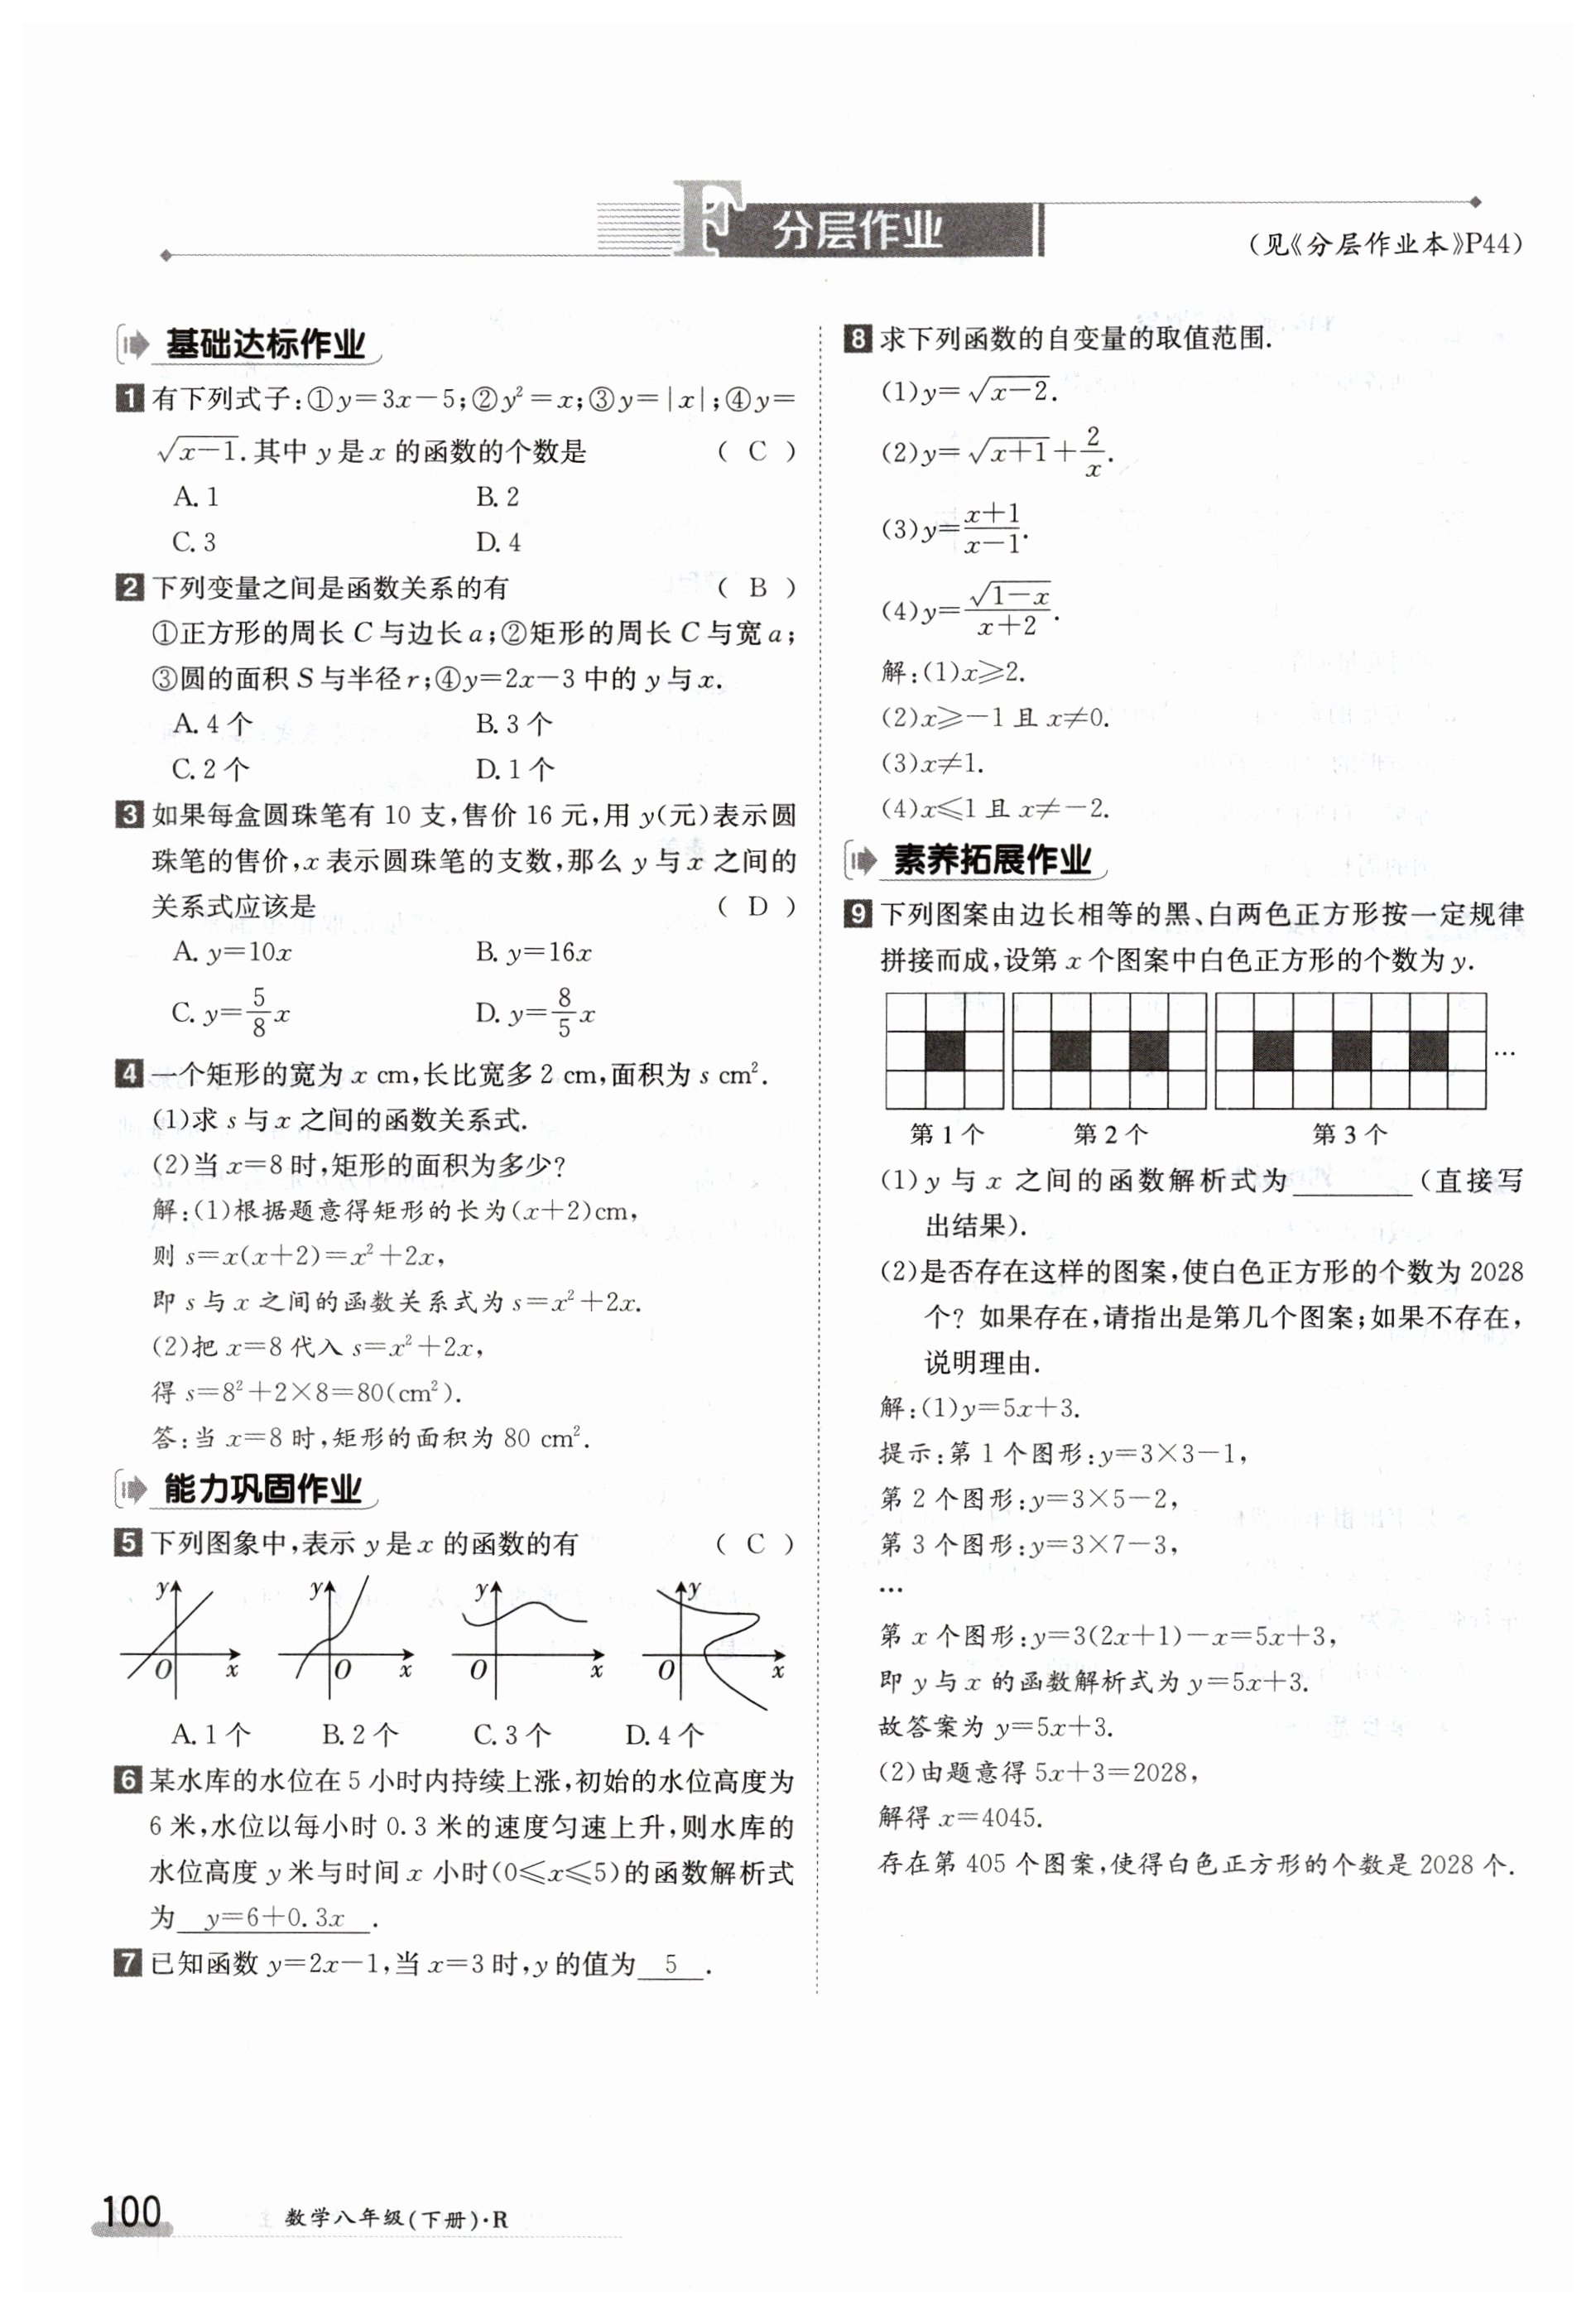 F 分层作业
(见《分层作业本》P44)
基础达标作业
1 有下列式子:①y=3x-5;②y²=x;③y=|x|;④y=
√(x-1).其中 y 是 x 的函数的个数是 ( C )
A. 1 B. 2
C. 3 D. 4
2 下列变量之间是函数关系的有 ( B )
①正方形的周长 C 与边长 a;②矩形的周长 C 与宽 a;
③圆的面积 S 与半径 r;④y=2x-3 中的 y 与 x.
A. 4 个 B. 3 个
C. 2 个 D. 1 个
3 如果每盒圆珠笔有 10 支,售价 16 元,用 y(元)表示圆
珠笔的售价,x 表示圆珠笔的支数,那么 y 与 x 之间的
关系式应该是 ( D )
A. y=10x B. y=16x
C. y=5/8 x D. y=8/5 x
4 一个矩形的宽为 x cm,长比宽多 2 cm,面积为 s cm².
(1)求 s 与 x 之间的函数关系式.
(2)当 x=8 时,矩形的面积为多少?
解:(1)根据题意得矩形的长为(x+2)cm,
则 s=x(x+2)=x²+2x,
即 s 与 x 之间的函数关系式为 s=x²+2x.
(2)把 x=8 代入 s=x²+2x,
得 s=8²+2×8=80(cm²).
答:当 x=8 时,矩形的面积为 80 cm².
能力巩固作业
5 下列图象中,表示 y 是 x 的函数的有 ( C )
y y y y
O x O x O x O x
A. 1 个 B. 2 个 C. 3 个 D. 4 个
6 某水库的水位在 5 小时内持续上涨,初始的水位高度为
6 米,水位以每小时 0.3 米的速度匀速上升,则水库的
水位高度 y 米与时间 x 小时(0≤x≤5)的函数解析式
为 y=6+0.3x .
7 已知函数 y=2x-1,当 x=3 时,y 的值为 5 .
8 求下列函数的自变量的取值范围.
(1)y=√(x-2).
(2)y=√(x+1)+2/x.
(3)y=(x+1)/(x-1).
(4)y=√(1-x)/(x+2).
解:(1)x≥2.
(2)x≥-1 且 x≠0.
(3)x≠1.
(4)x≤1 且 x≠-2.
素养拓展作业
9 下列图案由边长相等的黑、白两色正方形按一定规律
拼接而成,设第 x 个图案中白色正方形的个数为 y.
…
第 1 个 第 2 个 第 3 个
(1)y 与 x 之间的函数解析式为________(直接写
出结果).
(2)是否存在这样的图案,使白色正方形的个数为 2028
个? 如果存在,请指出是第几个图案;如果不存在,
说明理由.
解:(1)y=5x+3.
提示:第 1 个图形:y=3×3-1,
第 2 个图形:y=3×5-2,
第 3 个图形:y=3×7-3,
…
第 x 个图形:y=3(2x+1)-x=5x+3,
即 y 与 x 的函数解析式为 y=5x+3.
故答案为 y=5x+3.
(2)由题意得 5x+3=2028,
解得 x=4045.
存在第 405 个图案,使得白色正方形的个数是 2028 个.
100 数学八年级(下册)·R